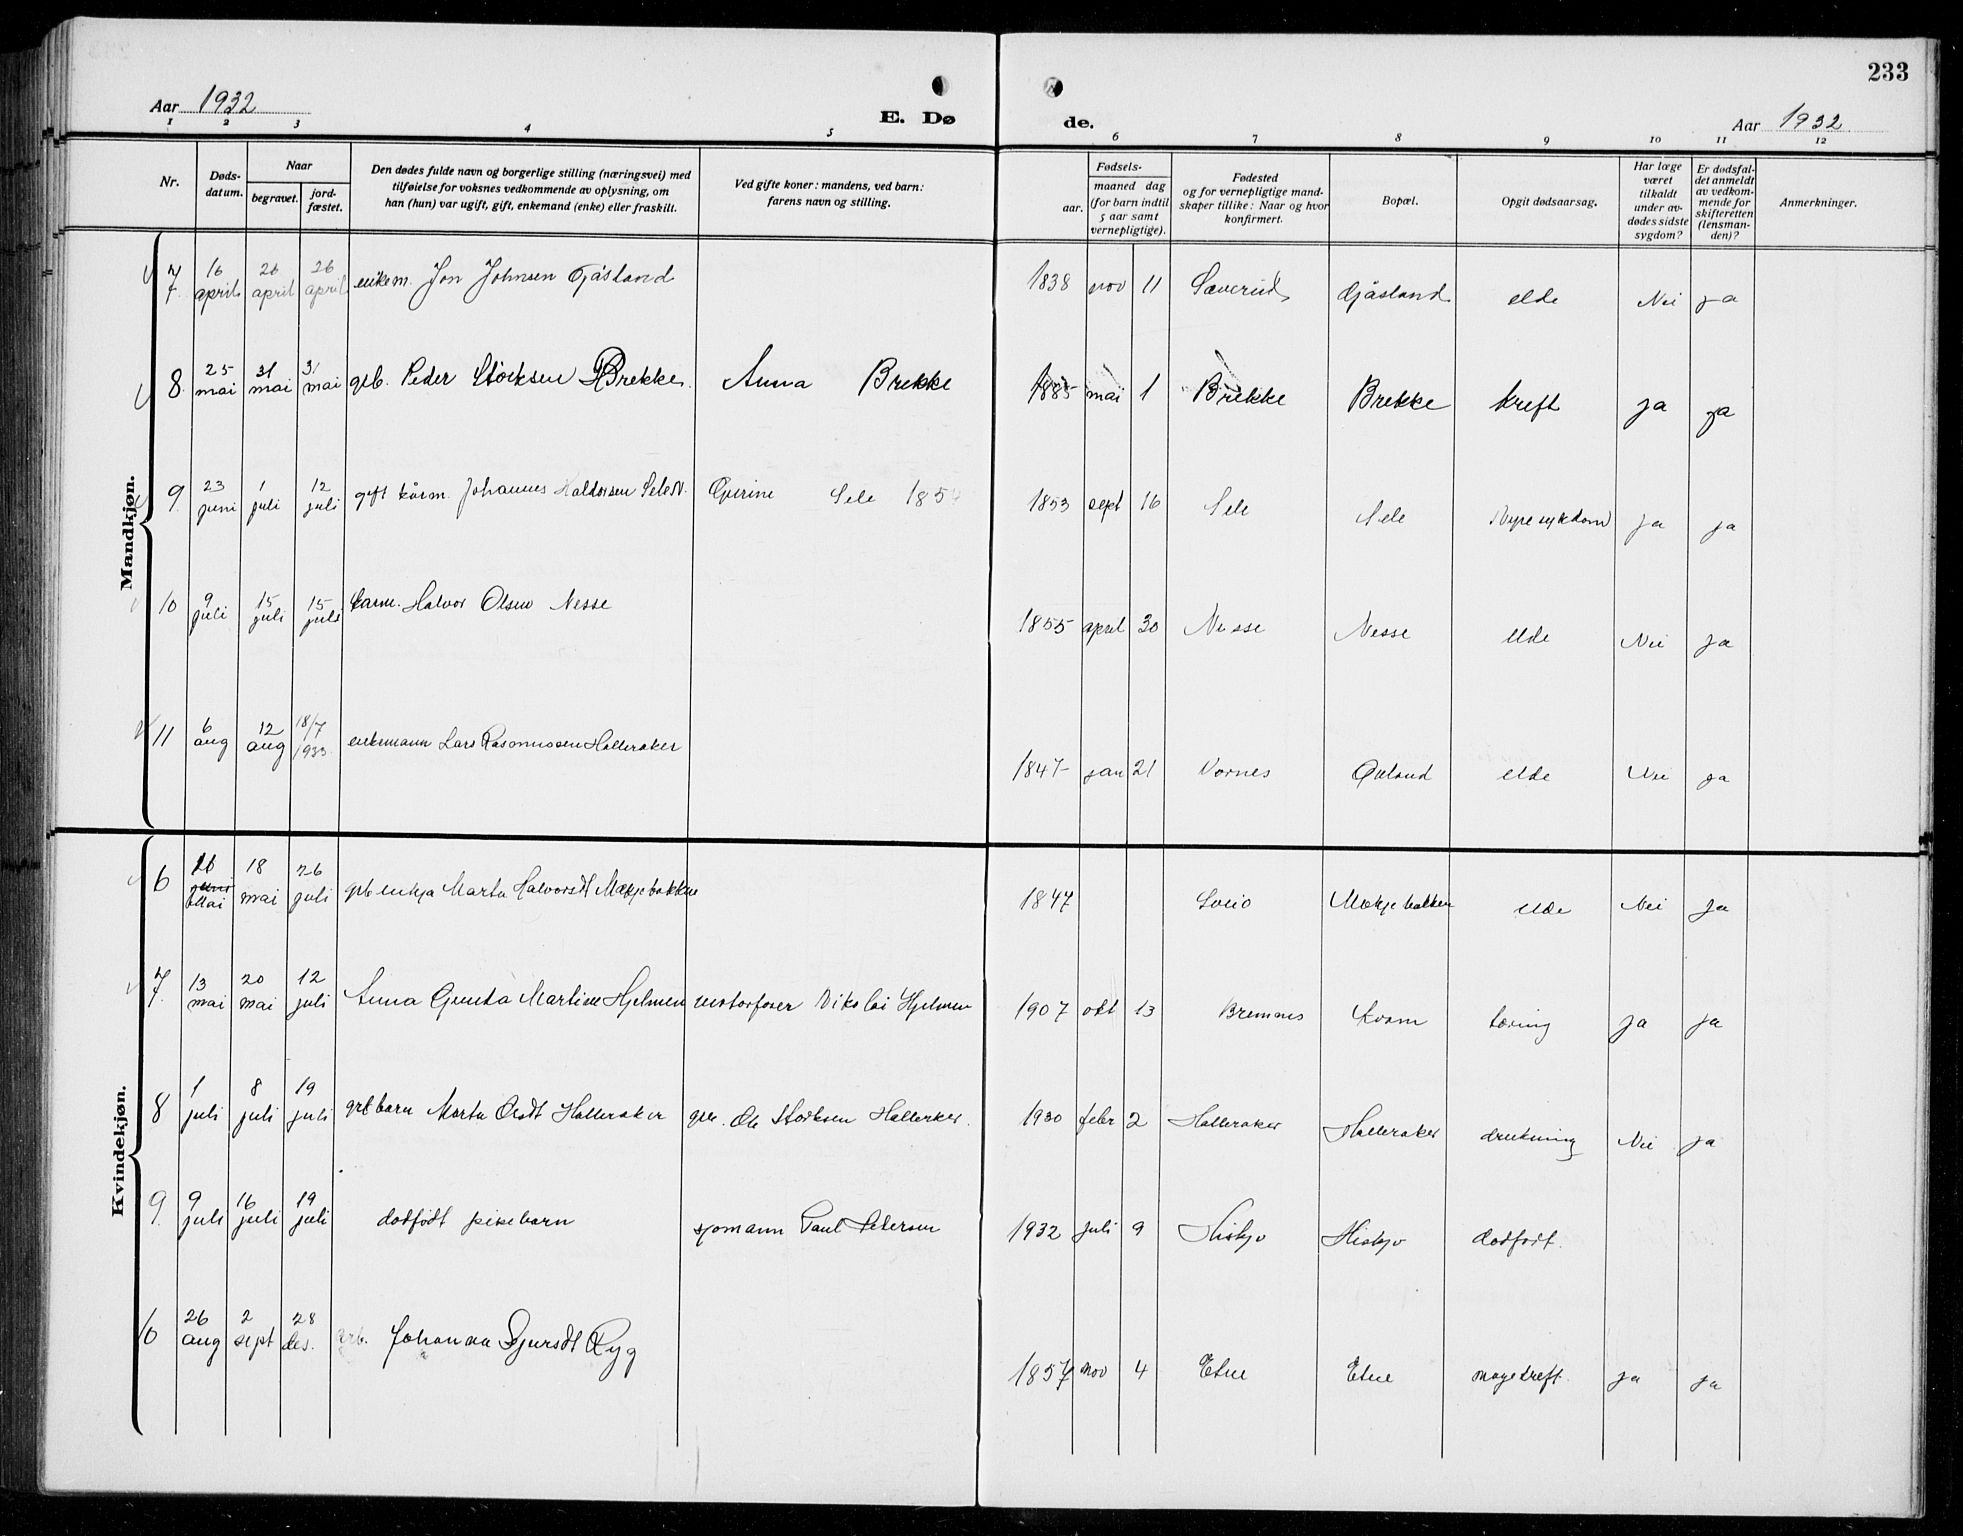 233
Aar 1932
E. Dø
de.
Aar 1932
1 2 3 4 5 6 7 8 9 10 11 12
Nr.
Døds-
datum.
Naar
begravet.
jord-
fæstet.
Den dødes fulde navn og borgerlige stilling (næringsvei) med
tilføielse for voksnes vedkommende av oplysning, om
han (hun) var ugift, gift, enkemand (enke) eller fraskilt.
Ved gifte koner: mandens, ved barn:
farens navn og stilling.
Fødsels-
aar.
maaned dag
(for barn indtil
5 aar samt
vernepligtige).
Fødested
og for vernepligtige mand-
skaper tillike: Naar og hvor
konfirmert.
Bopæl.
Opgit dødsaarsag.
Har læge
været
tilkaldt
under av-
dødes sidste
sygdom?
Er dødsfal-
det anmeldt
av vedkom-
mende for
skifteretten
(lensman-
den)?
Anmerkninger.
Mandkjøn.
7. 16 april 26 april 26 april enkem. Jon Johnsen Gåsland 1838 nov 11 Sæverud Gjåsland elde Nei ja
8. 25 mai 31 mai 31 mai grb. Peder Störksen Brekke. Anna Brekke 1885 mai 1 Brekke Brekke kreft ja ja
9. 23 juni 1 juli 12 juli gift kårm. Johannes Haldorsen Sele Gurine Sele 185 1853 sept 16 Sele Sele Nyresykdom ja ja
10 9 juli 15 juli 15 juli Karm. Halvor Olsen Nesse 1855 april 30 Nesse Nesse elde Nei ja
11 6 aug 12 aug 18/7 1933 enkemann Lars Rasmussen Halleraker 1847 jan 21 Vornes Økland elde Nei ja
Kvindekjøn.
6 16 mai 18 mai 26 juli grb enkja Marta Halvorsdt Mækjebakken 1847 Sveio Mækjebakken elde Nei ja
7. 13 mai 20 mai 12 juli Anna Gunda Martine Hjelmen motorfører Nikolai Hjelmen 1907 okt 13 Bremnes Kvam tæring ja ja
8 1 juli 8 juli 19 juli grb barn Marta Olsdt Halleraker grb. Ole Störksen Halleraker. 1930 febr 2 Halleraker Halleraker drukning Nei ja
9. 9 juli 16 juli 19 juli dødfödt pikebarn sjømann Paul Petersen 1932 juli 9 Hiskjo Hiskjo dødfødt.
10 26 aug 2 sept 28 des. grb. Johanna Sjursdt Ryg 1857 nov 4 Etne Etne magekreft. ja ja